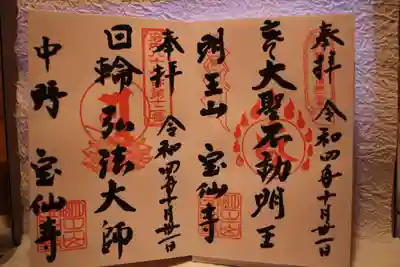 奉拝 令和四年十月廿一日
大聖不動明王
明王山 宝仙寺
奉拝 令和四年十月廿一日
日輪弘法大師
中野 宝仙寺